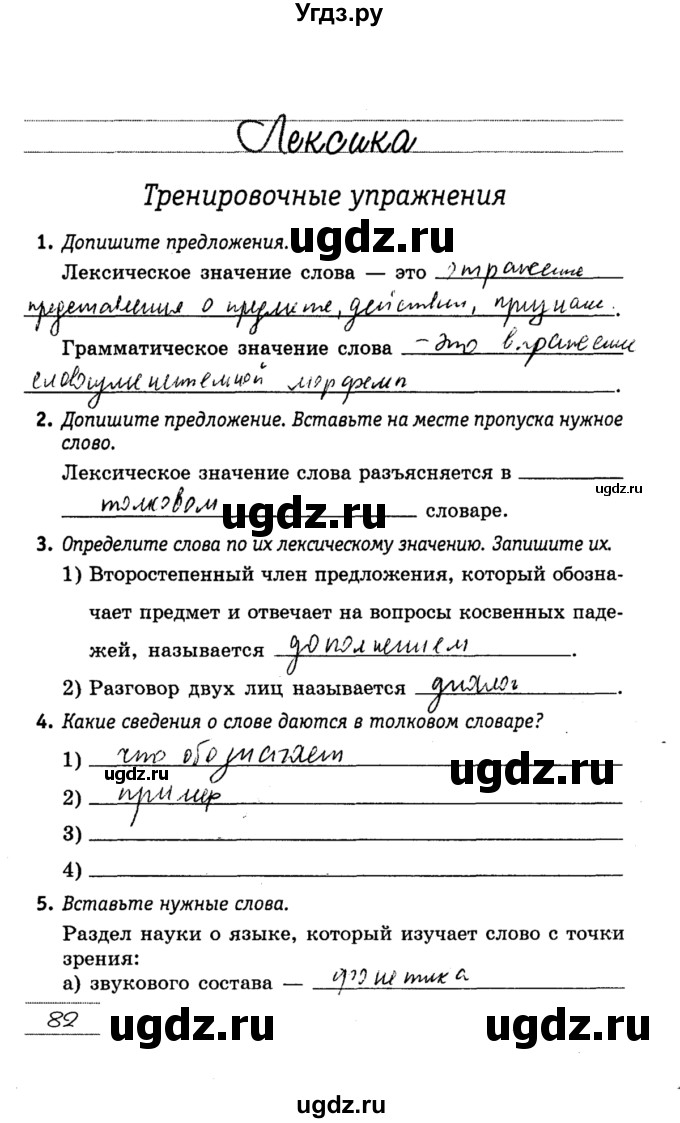 Угдз.ру
Лексика
Тренировочные упражнения
1. Допишите предложения.
ugdz.ru
Лексическое значение слова — это отражение
представления о предмете, действии, признаке.
Грамматическое значение слова – это выражение
словоизменительной морфемы.
2. Допишите предложение. Вставьте на месте пропуска нужное
слово.
Лексическое значение слова разъясняется в
ugdz.ru
толковом словаре.
ugdz.ru
3. Определите слова по их лексическому значению. Запишите их.
1) Второстепенный член предложения, который обозна-
чает предмет и отвечает на вопросы косвенных паде-
жей, называется дополнением.
2) Разговор двух лиц называется диалог.
4. Какие сведения о слове даются в толковом словаре?
1) что обозначает
ugdz.ru
ugdz.ru
2) пример
3)
4)
5. Вставьте нужные слова.
Раздел науки о языке, который изучает слово с точки
зрения:
а) звукового состава — фонетика
82
ugdz.ru
ugdz.ru
ugdz.ru